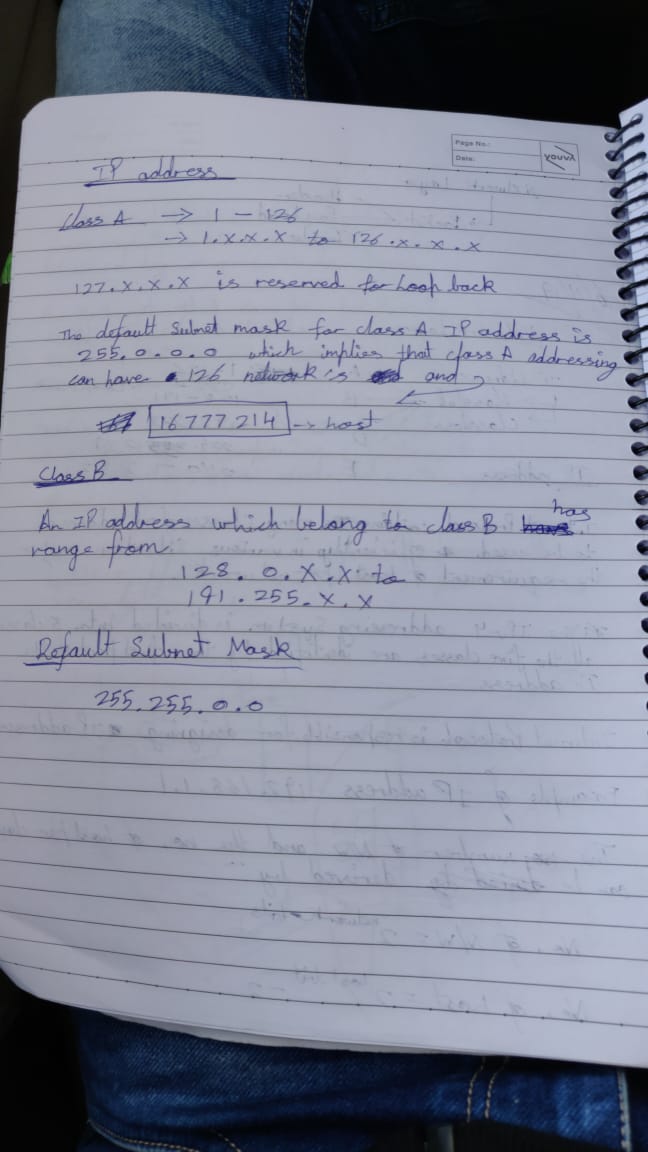 Page No.:
Date:
YOUVA
IP address
Class A → 1 – 126
→ 1.x.x.x to 126.x.x.x
127.x.x.x is reserved for Loop back
The default Subnet mask for class A IP address is
255.0.0.0 which implies that class A addressing
can have 126 network's and
16777214 → host
Class B
An IP address which belong to class B has
range from
128.0.x.x to
191.255.x.x
Default Subnet Mask
255.255.0.0